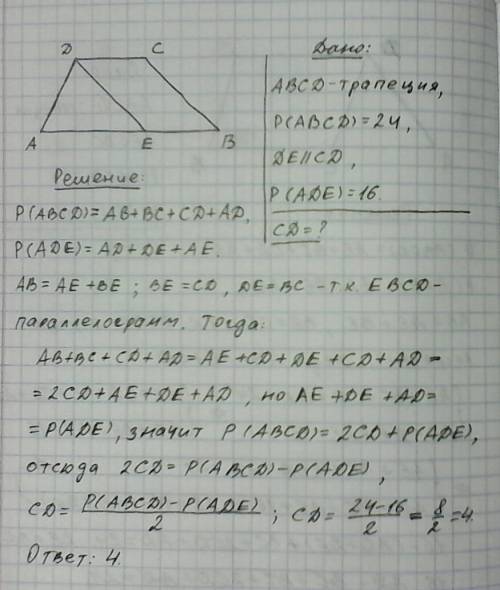 D C
A E B
Дано:
ABCD-трапеция,
P(ABCD)=24,
DE||CD,
P(ADE)=16.
CD=?
Решение:
P(ABCD)=AB+BC+CD+AD,
P(ADE)=AD+DE+AE.
AB=AE+BE; BE=CD, DE=BC -т.к. EBCD-
параллелограмм. Тогда:
AB+BC+CD+AD=AE+CD+DE+CD+AD=
=2CD+AE+DE+AD, но AE+DE+AD=
=P(ADE), значит P(ABCD)=2CD+P(ADE),
отсюда 2CD=P(ABCD)-P(ADE),
CD= P(ABCD)-P(ADE)/2; CD= 24-16/2 = 8/2 =4.
Ответ: 4.